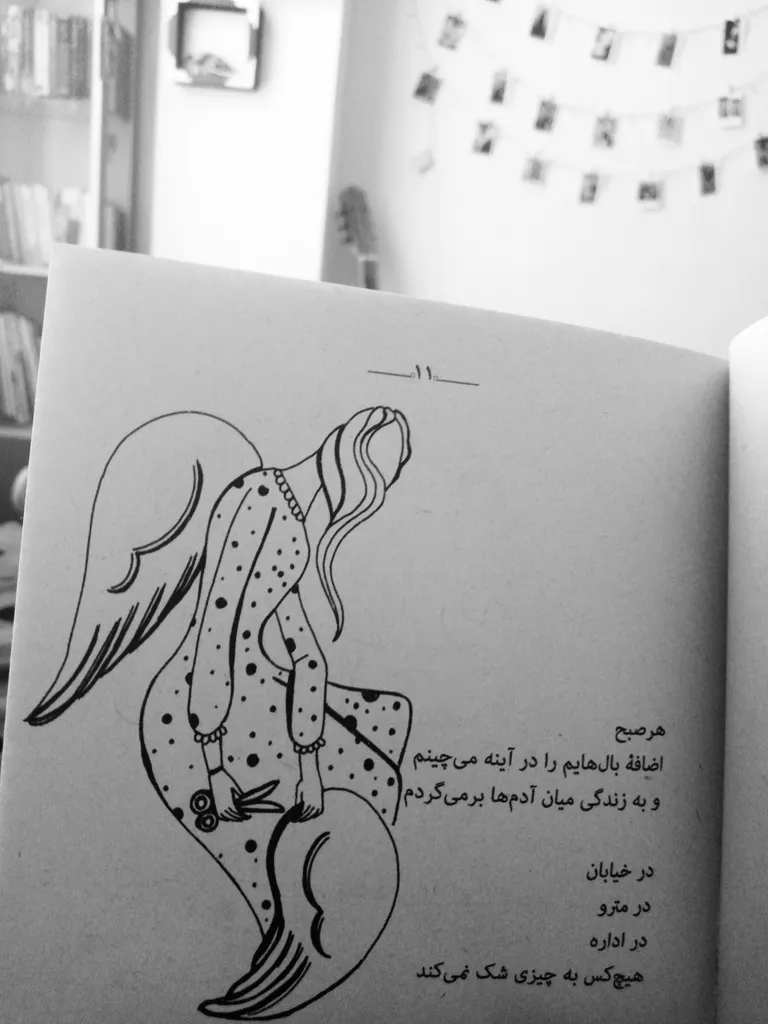 ۱۱
هرصبح
اضافهٔ بال‌هایم را در آینه می‌چینم
و به زندگی میان آدم‌ها برمی‌گردم
در خیابان
در مترو
در اداره
هیچ‌کس به چیزی شک نمی‌کند